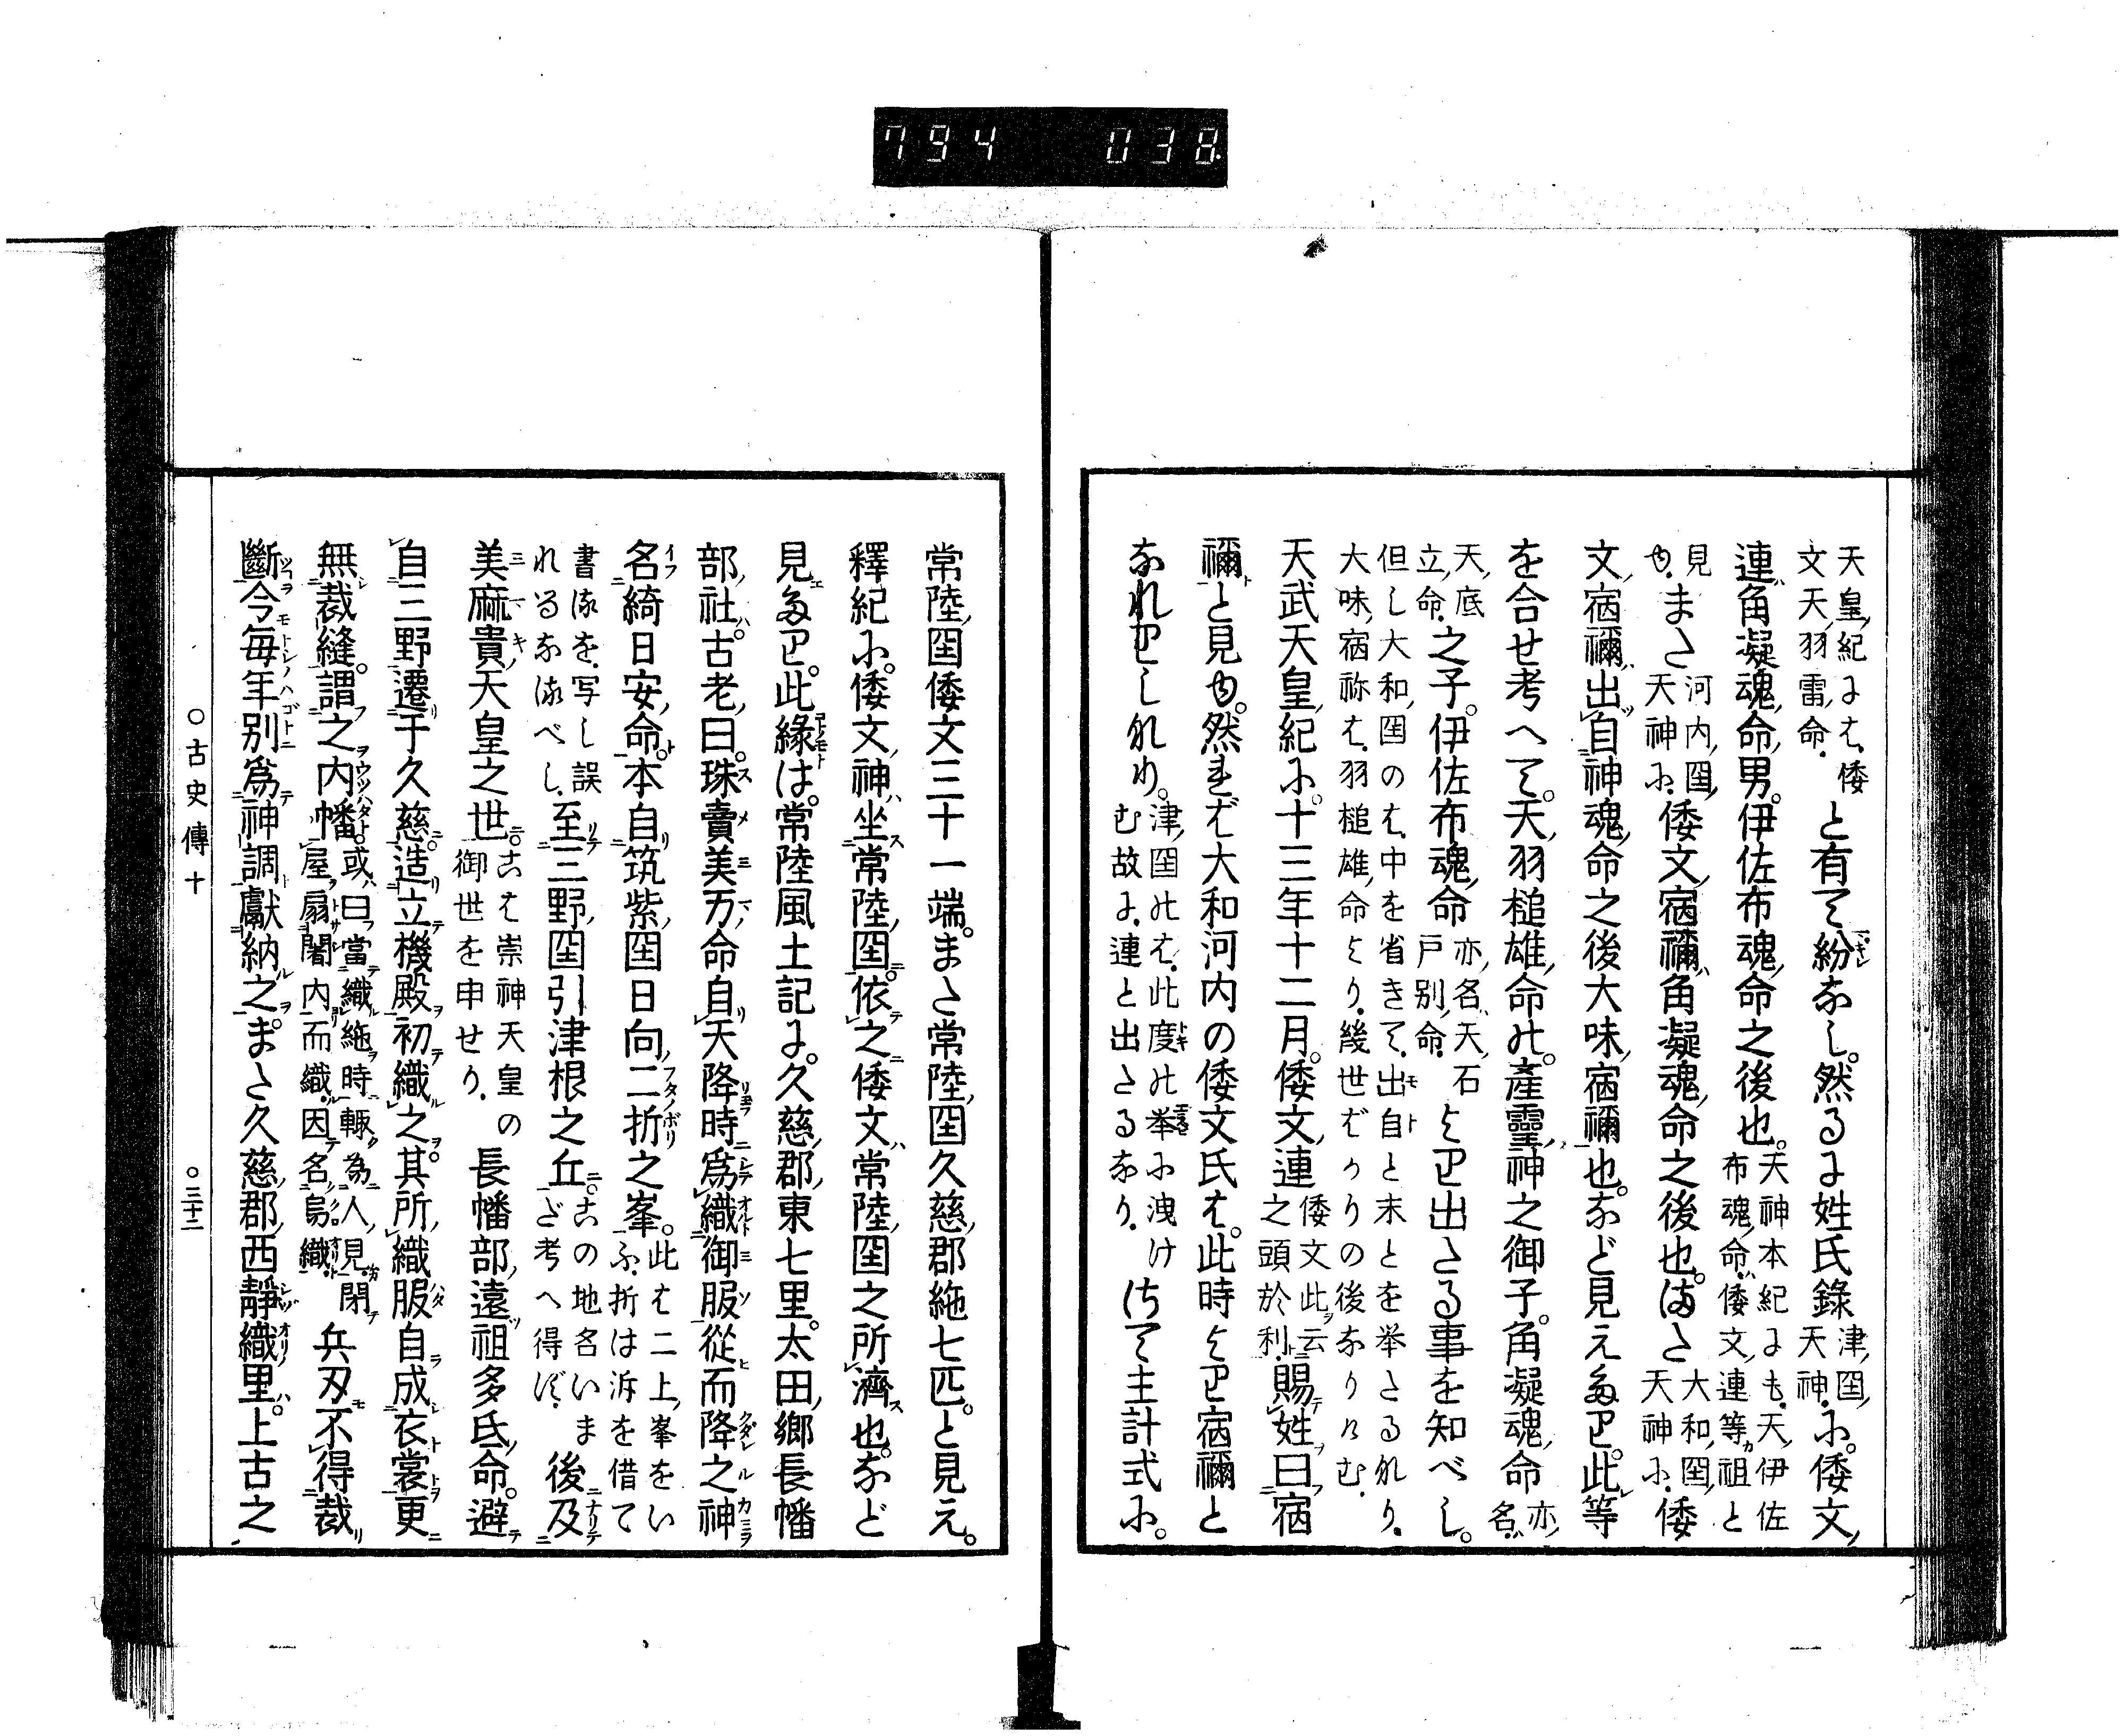 794 038
天皇紀には倭文天羽雷命と有て紛なし。然るに姓氏錄津國天神に。倭文
連角凝魂命男。伊佐布魂命之後也。天神本紀にも天伊佐布魂命倭文連等祖と
見ゆまた河内國天神に倭文宿禰角凝魂命之後也。また大和國天神に倭
文宿禰出自神魂命之後大味宿禰也。など見えたり。此等
を合せ考へて。天羽槌雄命は。產靈神之御子。角凝魂命亦名
天底立命之子。伊佐布魂命亦名天石戸別命より出たる事を知べし。
但し大和國のは中を省きて出自と末とを挙たるなり大味宿祢は羽槌雄命より幾世ばかりの後なりけむ
天武天皇紀に。十三年十二月。倭文連倭文此云之頭於利賜姓曰宿
禰と見ゆ。然れば大和河内の倭文氏は。此時より宿禰と
なれりしなり。津國なるは此度の挙に洩けむ故に連と出たるなりさて主計式に。
常陸國倭文三十一端。また常陸國久慈郡絁七匹。と見え。
釋紀に。倭文神坐常陸國。依之倭文常陸國之所濟也。など
見えたり。此緣は。常陸風土記に。久慈郡東七里。太田鄉長幡
部社。古老曰。珠賣美万命自天降時爲織御服從而降之神
名綺日安命。本自筑紫國日向二折之峯。此は二上峯をいふ折は泝を借て
書るを写し誤れるなるべし至三野國引津根之丘。この地名いまだ考へ得ず後及
美麻貴天皇之世。こは崇神天皇の御世を申せり長幡部遠祖多氏命。避
自三野遷于久慈。造立機殿初織之。其所織服自成衣裳更
無裁縫。謂之内幡。或曰當織絁時輙為人見閉屋扇闇内而織因名烏織兵刃不得裁
斷今每年別爲神調獻納之。また久慈郡西靜織里。上古之
○古史傳十 ○三十二